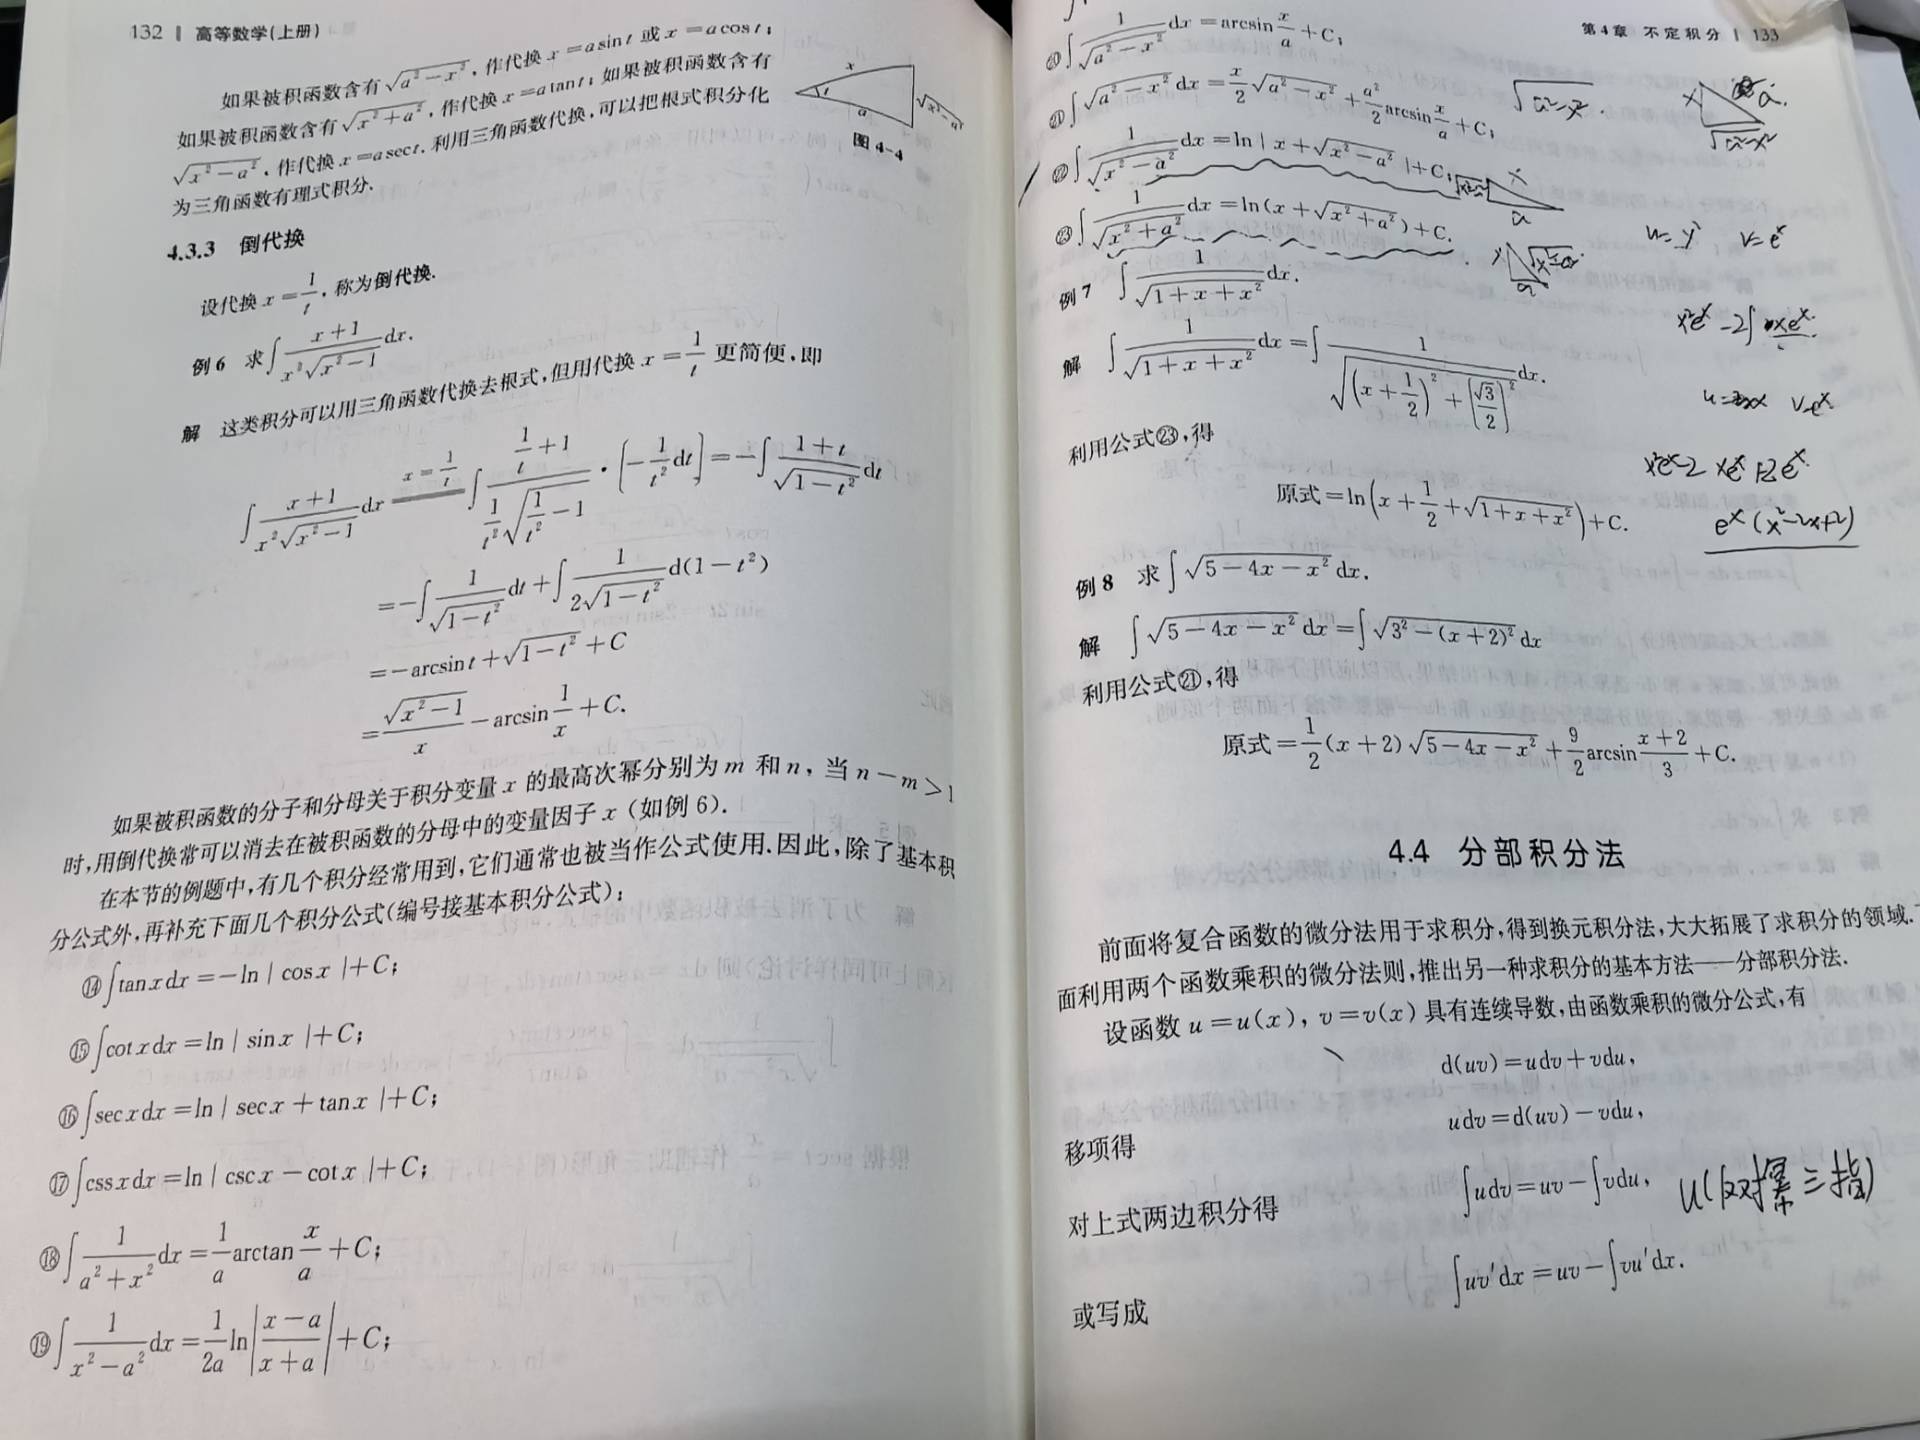 132 高等数学(上册)
如果被积函数含有√(a²−x²),作代换 x=asint 或 x=acost;
如果被积函数含有√(x²+a²),作代换 x=atant;如果被积函数含有
√(x²−a²),作代换 x=asect.利用三角函数代换,可以把根式积分化
为三角函数有理式积分.
x
t
a
√(x²−a²)
图 4-4
4.3.3 倒代换
设代换 x=1/t,称为倒代换.
例 6 求∫(x+1)/(x²√(x²−1))dx.
解 这类积分可以用三角函数代换去根式,但用代换 x=1/t 更简便,即
∫(x+1)/(x²√(x²−1))dx =(x=1/t)= ∫(1/t+1)/((1/t²)√(1/t²−1))·(−1/t²dt)=−∫(1+t)/√(1−t²)dt
=−∫1/√(1−t²)dt+∫1/(2√(1−t²))d(1−t²)
=−arcsint+√(1−t²)+C
=√(x²−1)/x−arcsin1/x+C.
如果被积函数的分子和分母关于积分变量 x 的最高次幂分别为 m 和 n,当 n−m>1
时,用倒代换常可以消去在被积函数的分母中的变量因子 x(如例 6).
在本节的例题中,有几个积分经常用到,它们通常也被当作公式使用.因此,除了基本积
分公式外,再补充下面几个积分公式(编号接基本积分公式):
⑭∫tanxdx=−ln|cosx|+C;
⑮∫cotxdx=ln|sinx|+C;
⑯∫secxdx=ln|secx+tanx|+C;
⑰∫cssxdx=ln|cscx−cotx|+C;
⑱∫1/(a²+x²)dx=1/a arctan x/a+C;
⑲∫1/(x²−a²)dx=1/2a ln|(x−a)/(x+a)|+C;
第 4 章 不定积分 133
⑳∫1/√(a²−x²)dx=arcsin x/a+C;
㉑∫√(a²−x²)dx=x/2√(a²−x²)+a²/2 arcsin x/a+C;
√(a²−x²)
x
a
√(a²−x²)
㉒∫1/√(x²−a²)dx=ln|x+√(x²−a²)|+C;
x
a
㉓∫1/√(x²+a²)dx=ln(x+√(x²+a²))+C.
x
a
u=y² v=eˣ
例 7 ∫1/√(1+x+x²)dx.
x²eˣ−2∫xeˣ
解 ∫1/√(1+x+x²)dx=∫1/√((x+1/2)²+(√3/2)²)dx.
v=eˣ
利用公式㉓,得
x²eˣ−2xeˣ+2eˣ
原式=ln(x+1/2+√(1+x+x²))+C.
eˣ(x²−2x+2)
例 8 求∫√(5−4x−x²)dx.
解 ∫√(5−4x−x²)dx=∫√(3²−(x+2)²)dx
利用公式㉑,得
原式=1/2(x+2)√(5−4x−x²)+9/2 arcsin (x+2)/3+C.
4.4 分部积分法
前面将复合函数的微分法用于求积分,得到换元积分法,大大拓展了求积分的领域.
面利用两个函数乘积的微分法则,推出另一种求积分的基本方法——分部积分法.
设函数 u=u(x),v=v(x)具有连续导数,由函数乘积的微分公式,有
d(uv)=udv+vdu,
移项得
udv=d(uv)−vdu,
对上式两边积分得
∫udv=uv−∫vdu,
u(反对幂三指)
或写成
∫uv′dx=uv−∫vu′dx.